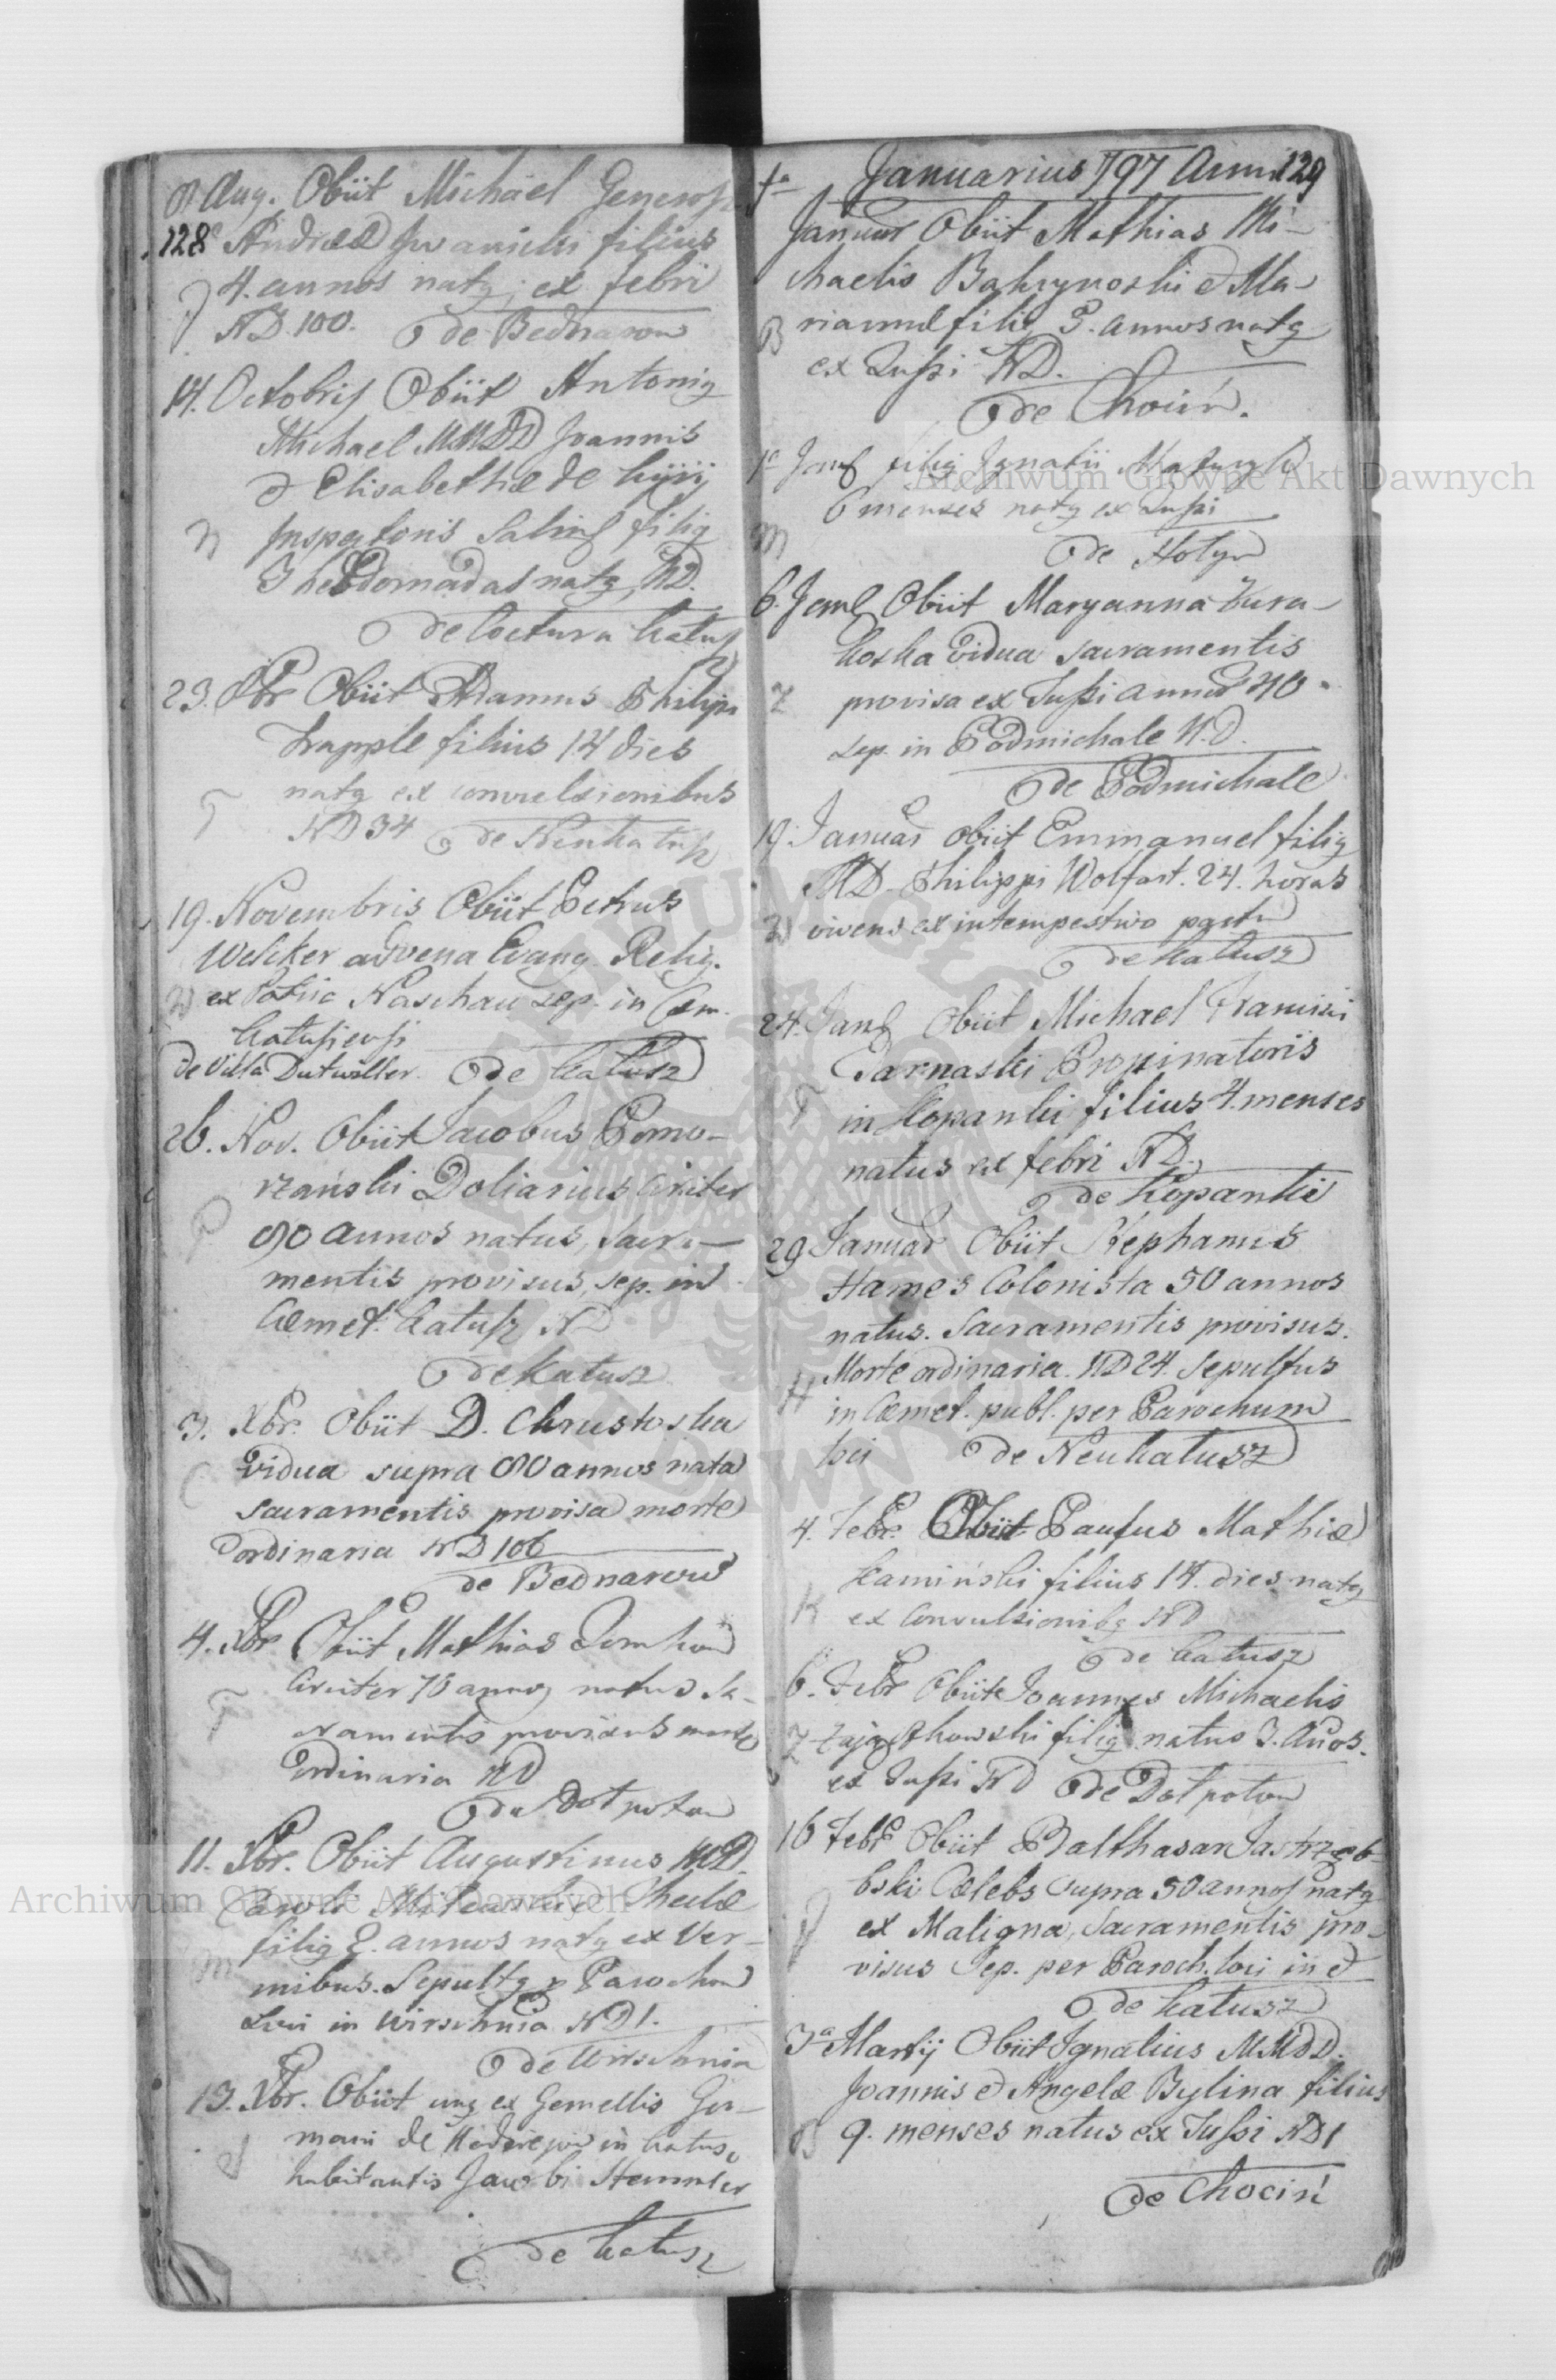 8 Aug. Obiit Michael Generosi
128
Andreæ Iwanicki filius
4. annos natg; ex febri
ND. 100. de Bednarow
14. Octobris Obiit Antonig
Michael MMDD Joannis
& Elisabethæ de
N Inspectoris Salin filig
3 hebdomadas natg, ND.
de Coctura Katusz
23. Obiit Adamus Philipi
Trapple filius 14 dies
T natg ex convulsionibus
ND 34 de Neukatusz
19. Novembris Obiit Petrus
Welcker advena Evang. Relig.
W ex Patria Kaschau sep. in Cæm.
Katusiensi
de Villa Dutwiller. de Katusz
26. Nov. Obiit Jacobus Pomo-
rzański Doliarius Circiter
P 90 annos natus, sacra-
mentis provisus, sep. in
Cæmet. Katusz ND
de Katusz
3. Xbr. Obiit D. Chrustoska
Vidua supra 90 annos nata
C Sacramentis provisa morte
ordinaria ND 106
de Bednarow
4. Xbr Obiit Mathias Tomkow
Circiter 70 annos natus Sa-
T cramentis provisus morte
ordinaria ND
de Dotpotow
11. Xbr. Obiit Augustinus MD.
Caroli & Theclæ
filig 2. annos natg ex Ver-
M mibus. Sepultg p Parochum
Loci in Wirschnia ND 1.
de Wirschnia
13. Xbr. Obiit ung ex Gemellis Ger-
mani de in Katusz
habitantis Jacobi Stemmler
de Katusz
1a Januarius 797 Anni 129
Januar Obiit Mathias Mi-
chaelis Bakrynoski & Ma-
B riannæ filig 3. annos natg
ex Tussi ND.
de Chocin.
1a Jan filig Ignatii
6 menses natg ex Tussi
M de Holyn
6. Jan Obiit Maryanna Zura-
koska Vidua sacramentis
Z provisa ex Tussi annor 40
sep. in Podmichale N.D.
de Podmichale
19. Januar obiit Emmanuel filig
MD Philippi Wolfart. 24. horas
W vivens ex intempestivo partu
de Katusz
24. Jan Obiit Michael Francisci
Tarnaski Propinatoris
T in Kopanki filius 4. menses
natus ex febri ND.
de Kopanki
29 Januar Obiit Stephanus
Hames Colonista 50 annos
natus. Sacramentis provisus.
H Morte ordinaria. ND 24. Sepultus
in Cæmet. publ. per Parochum
loci de Neukatusz
4. Febr. Obiit Paulus Mathiæ
Kamiński filius 14. dies natg
K ex Convulsionibg ND
de Katusz
6. Febr Obiit Joannes Michaelis
Z filig natus 3. Anos.
ex Tussi ND de Dotpotow
16 Febr Obiit Balthasar Jastrzęb-
bski Cælebs supra 50 annos natg
J ex Maligna, Sacramentis pro-
visus Sep. per Paroch. loci in &
de Katusz
3a Martij Obiit Ignatius MMDD.
Joannis & Angelæ Bylina filius
B 9. menses natus ex Tussi ND 1
de Chocin
Archiwum Główne Akt Dawnych
Archiwum Główne Akt Dawnych